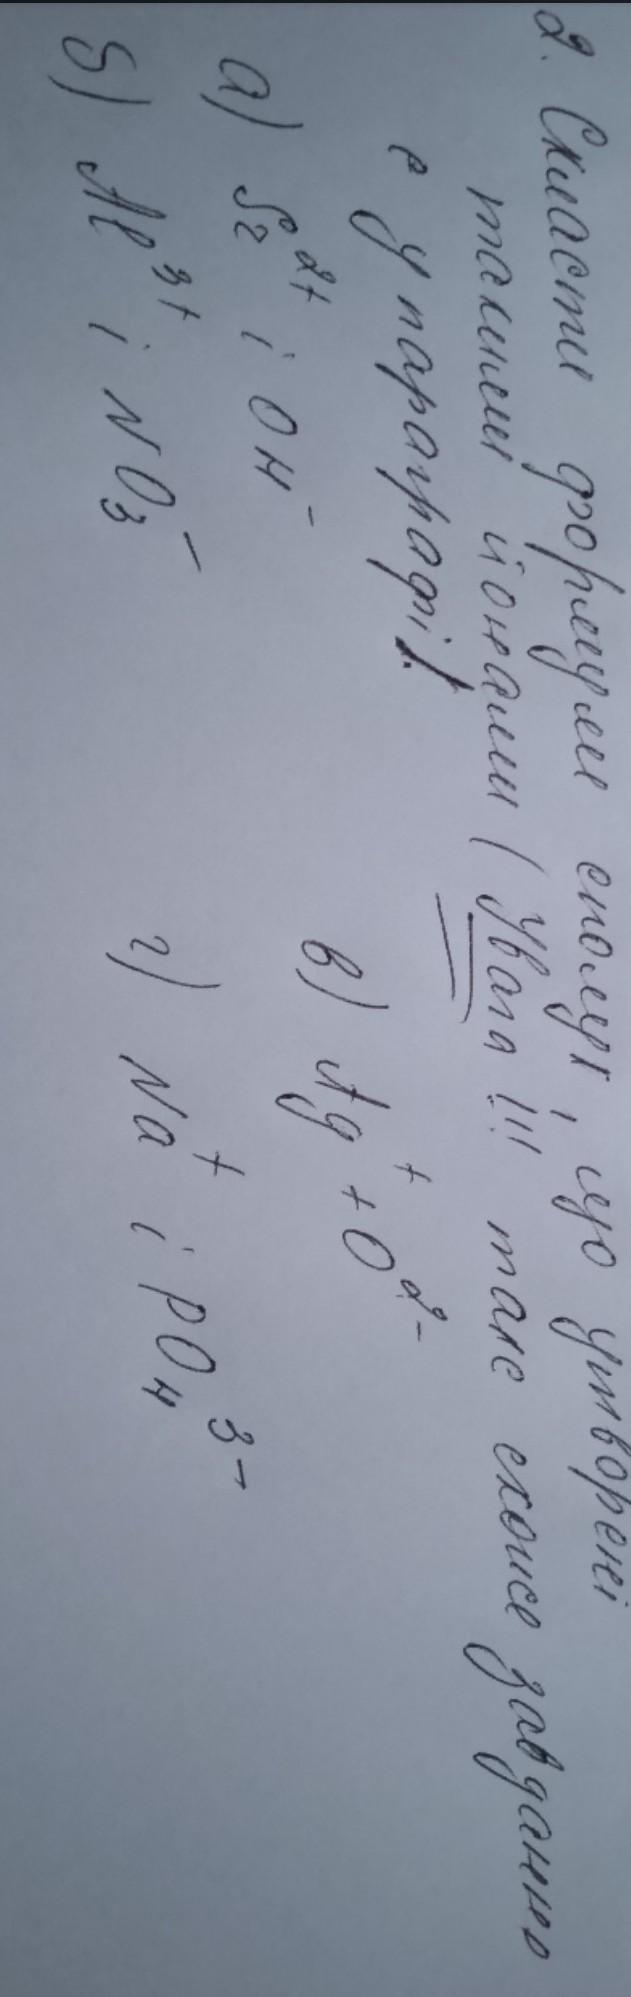 2. Скласти формули сполук, що утворені
такими йонами (Увага !!! таке схоже завдання
є у параграфі!
а) Sr²⁺ і OH⁻
б) Al³⁺ і NO₃⁻
в) Ag⁺ + O²⁻
г) Na⁺ і PO₄³⁻